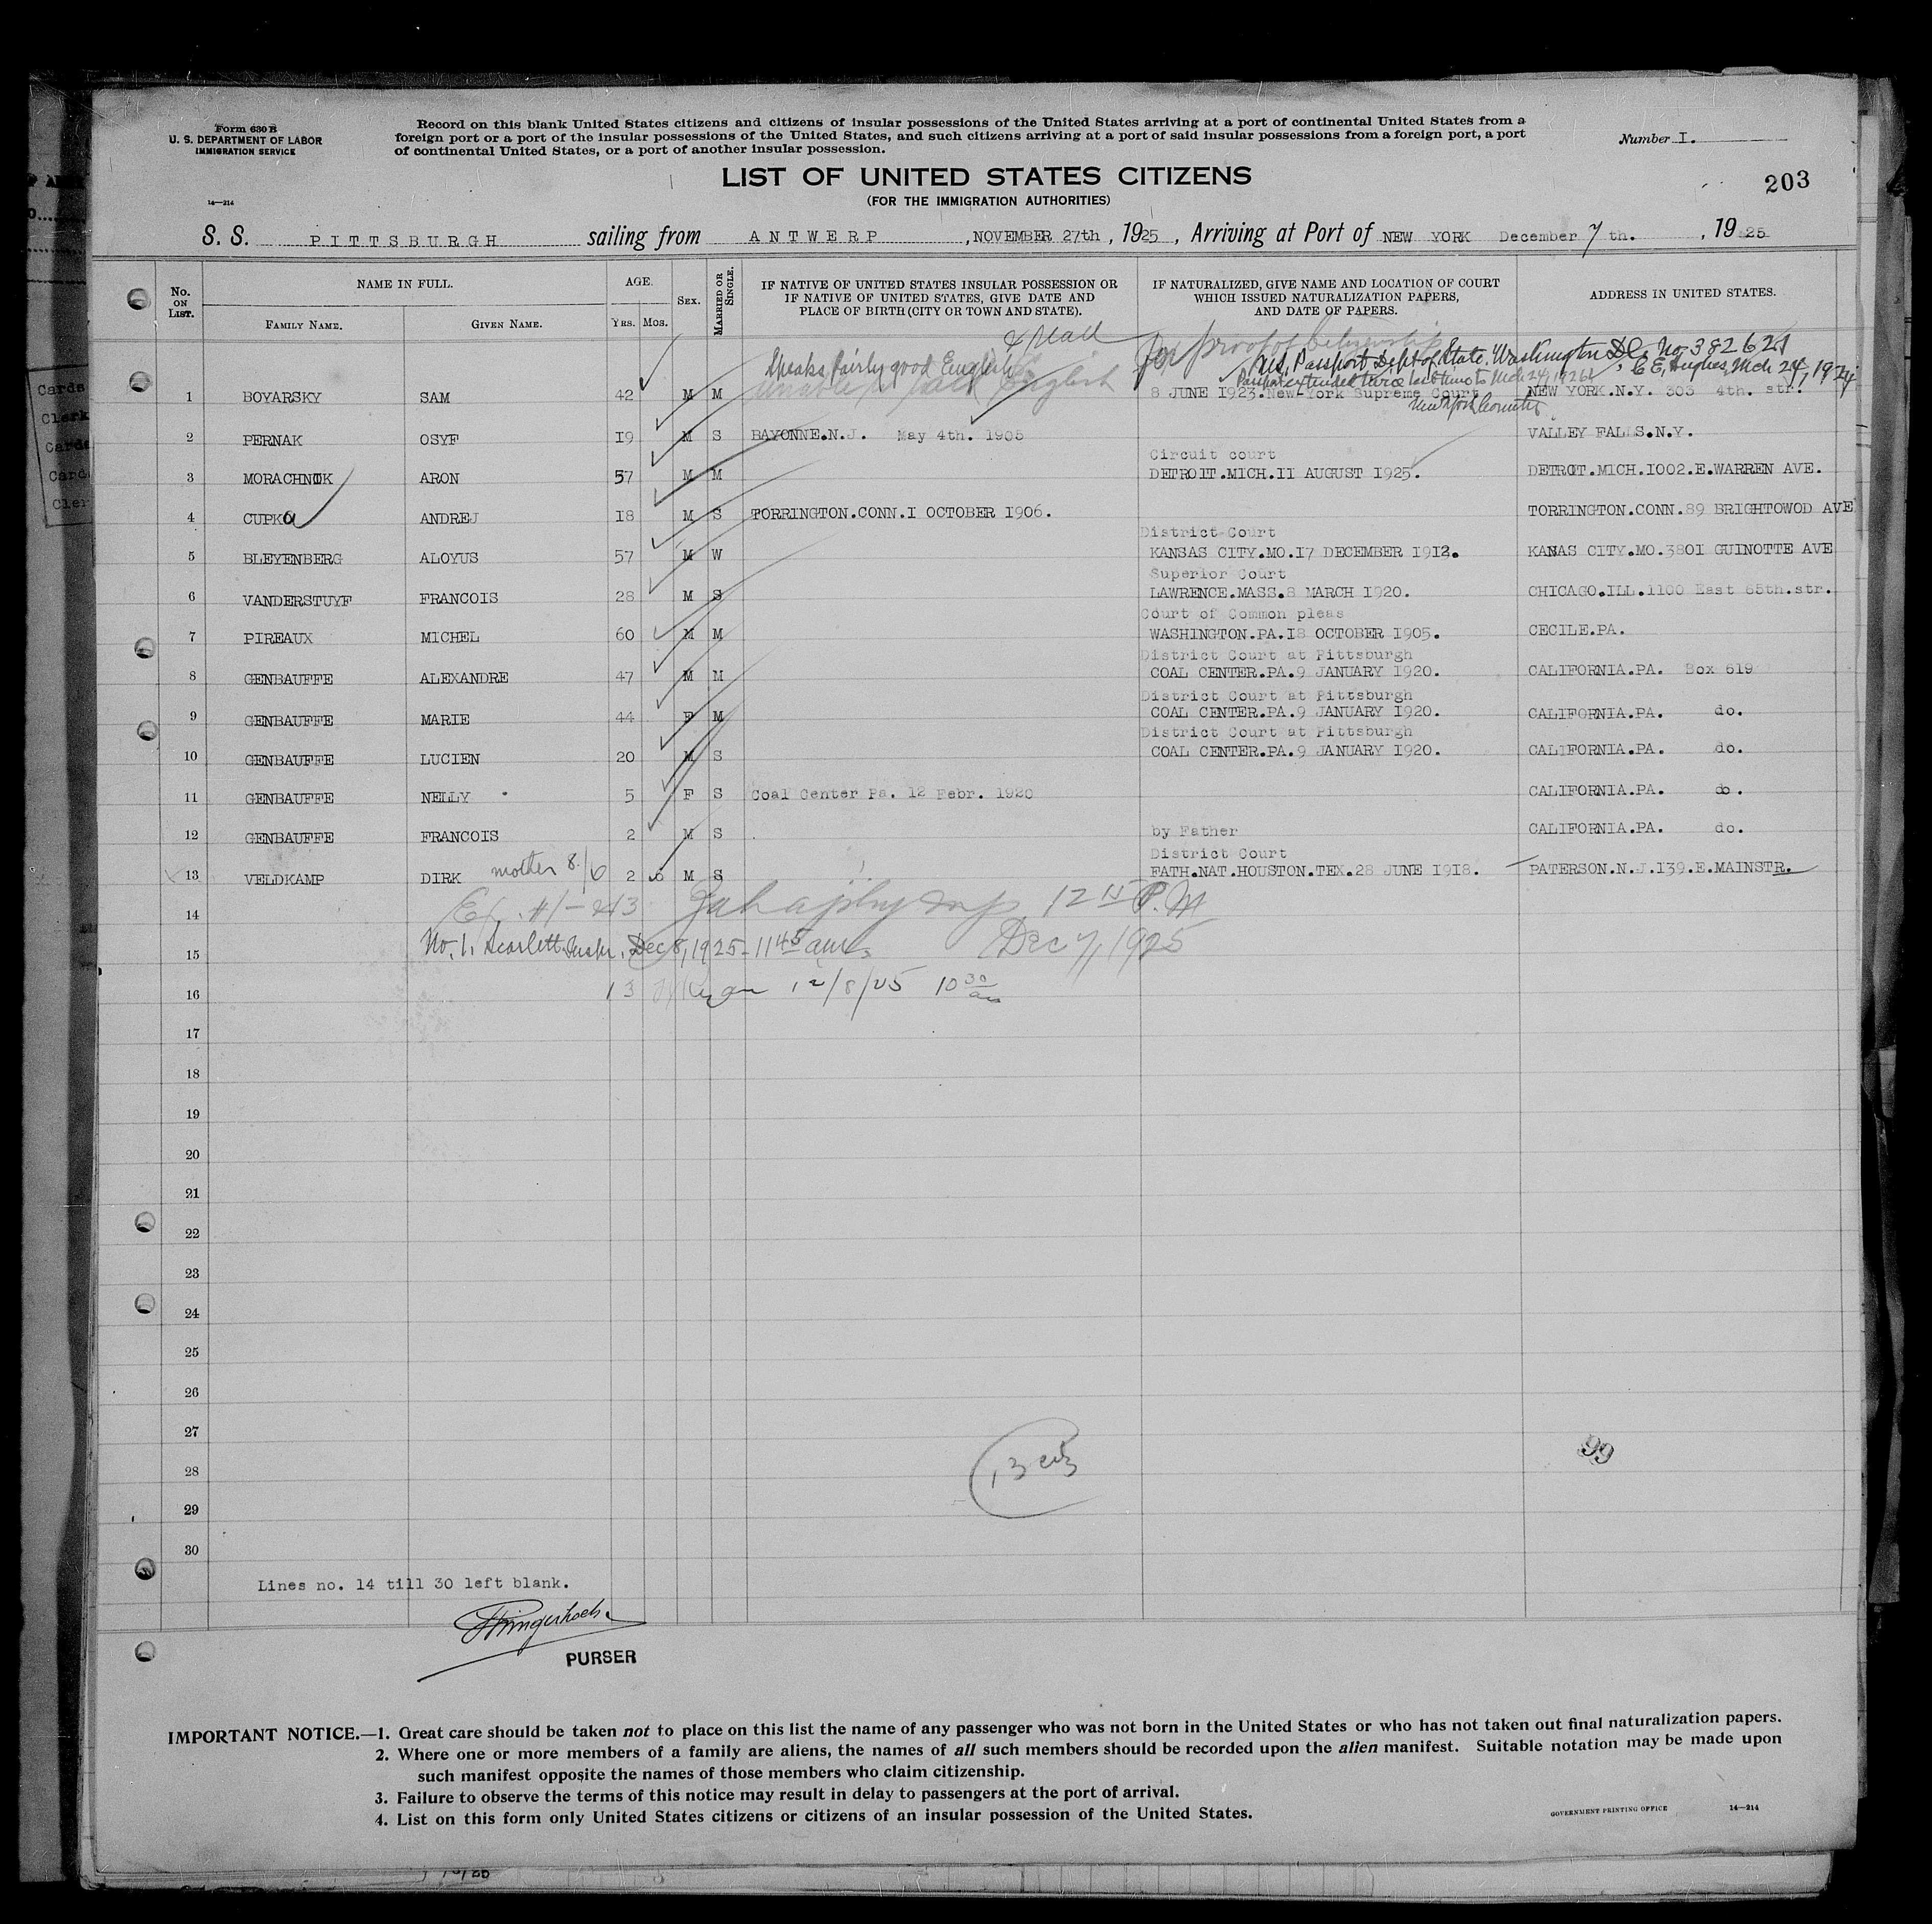 Form 630 B
U. S. DEPARTMENT OF LABOR
IMMIGRATION SERVICE
14—214
Record on this blank United States citizens and citizens of insular possessions of the United States arriving at a port of continental United States from a
foreign port or a port of the insular possessions of the United States, and such citizens arriving at a port of said insular possessions from a foreign port, a port
of continental United States, or a port of another insular possession.
Number I.
LIST OF UNITED STATES CITIZENS
203
(FOR THE IMMIGRATION AUTHORITIES)
S. S. PITTSBURGH sailing from ANTWERP, NOVEMBER 27th, 1925, Arriving at Port of NEW YORK December 7 th., 1925
No. ON LIST. NAME IN FULL. FAMILY NAME. GIVEN NAME. AGE. YRS. MOS. SEX. MARRIED OR SINGLE. IF NATIVE OF UNITED STATES INSULAR POSSESSION OR IF NATIVE OF UNITED STATES, GIVE DATE AND PLACE OF BIRTH (CITY OR TOWN AND STATE). IF NATURALIZED, GIVE NAME AND LOCATION OF COURT WHICH ISSUED NATURALIZATION PAPERS, AND DATE OF PAPERS. ADDRESS IN UNITED STATES.
& read
for proof of citizenship
Speaks fairly good English
U.S. Passport Dept of State. Washington DC. No. 382621
C E, Hughes, Mch 24, 1924
unable to talk English
Passport extended twice last time to Mch 24, 1926
1 BOYARSKY SAM 42 M M 8 JUNE 1923.New-York Supreme Court NEW YORK.N.Y. 303 4th. str.
New York Counties
2 PERNAK OSYF I9 M S BAYONNE.N.J. May 4th. 1905 VALLEY FALLS.N.Y.
Circuit court
3 MORACHNIK ARON 57 M M DETROIT.MICH.II AUGUST I925. DETROIT.MICH.I002.E.WARREN AVE.
4 CUPKA ANDREJ I8 M S TORRINGTON.CONN.I OCTOBER I906. TORRINGTON.CONN.89 BRIGHTOWOD AVE
District Court
5 BLEYENBERG ALOYUS 57 M W KANSAS CITY.MO.I7 DECEMBER I9I2. KANAS CITY.MO.3801 GUINOTTE AVE
Superior Court
6 VANDERSTUYF FRANCOIS 28 M S LAWRENCE.MASS.8 MARCH I920. CHICAGO.ILL.1100 East 65th.str.
Court of Common pleas
7 PIREAUX MICHEL 60 M M WASHINGTON.PA.I8 OCTOBER I905. CECILE.PA.
District Court at Pittsburgh
8 GENBAUFFE ALEXANDRE 47 M M COAL CENTER.PA.9 JANUARY I920. CALIFORNIA.PA. Box 619
District Court at Pittsburgh
9 GENBAUFFE MARIE 44 F M COAL CENTER.PA.9 JANUARY I920. CALIFORNIA.PA. do.
District Court at Pittsburgh
10 GENBAUFFE LUCIEN 20 M S COAL CENTER.PA.9 JANUARY I920. CALIFORNIA.PA. do.
11 GENBAUFFE NELLY 5 F S Coal Center Pa. 12 Febr. 1920 CALIFORNIA.PA. do.
12 GENBAUFFE FRANCOIS 2 M S by Father CALIFORNIA.PA. do.
District Court
13 VELDKAMP DIRK mother 8/6 2 6 M S FATH.NAT.HOUSTON.TEX.28 JUNE I9I8. PATERSON.N.J.I39.E.MAINSTR.
14 12 15 P.M
15 No. 1. Scarlett Inspr. Dec 8, 1925 - 11 45 am. Dec 7, 1925
16 13 12/8/25 10 30 am
17
18
19
20
21
22
23
24
25
26
27
99
28
29
30
Lines no. 14 till 30 left blank.
PURSER
IMPORTANT NOTICE.—1. Great care should be taken not to place on this list the name of any passenger who was not born in the United States or who has not taken out final naturalization papers.
2. Where one or more members of a family are aliens, the names of all such members should be recorded upon the alien manifest. Suitable notation may be made upon
such manifest opposite the names of those members who claim citizenship.
3. Failure to observe the terms of this notice may result in delay to passengers at the port of arrival.
4. List on this form only United States citizens or citizens of an insular possession of the United States.
GOVERNMENT PRINTING OFFICE 14—214